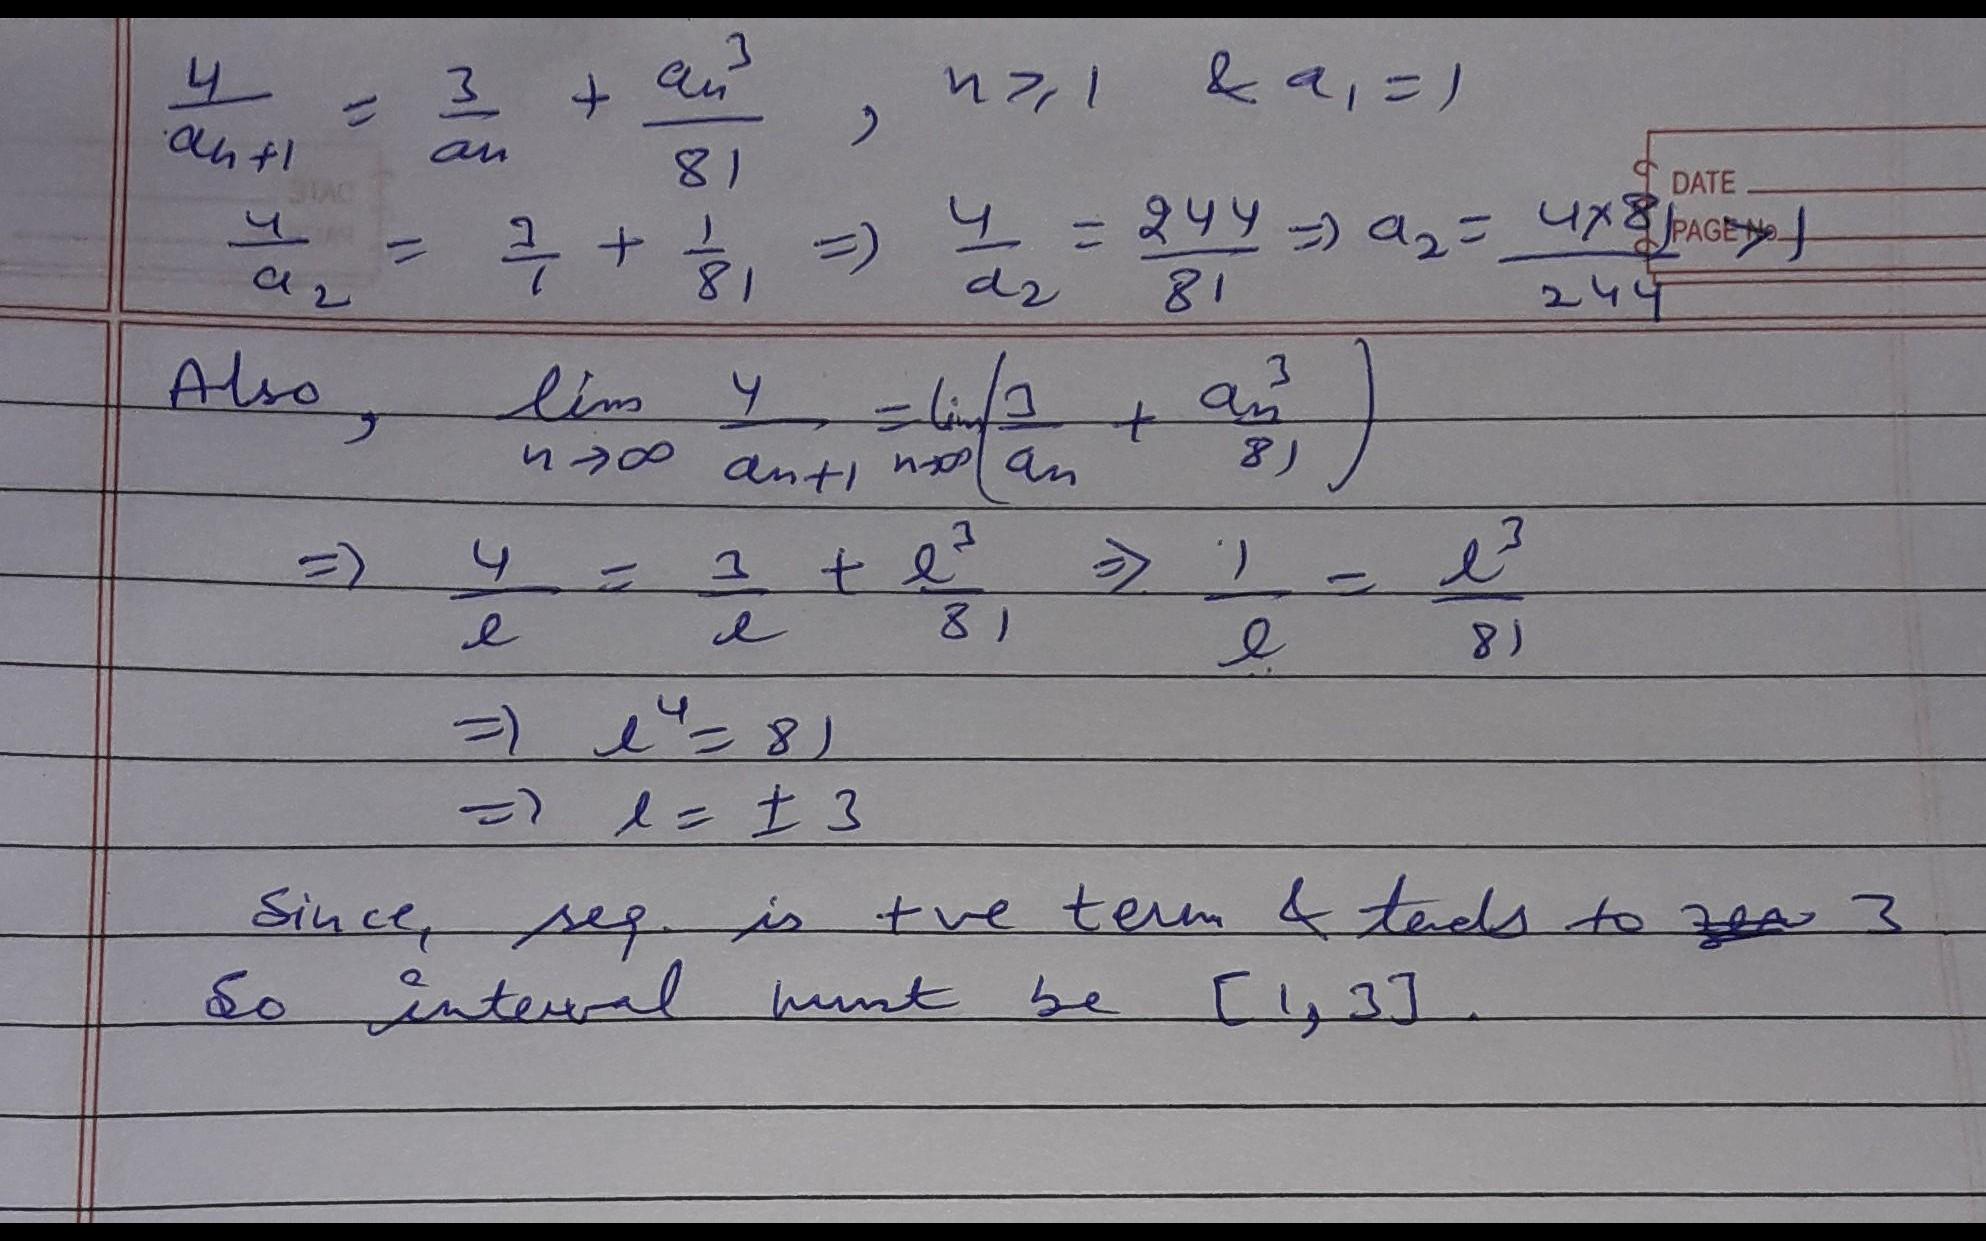 4/a_{n+1} = 3/a_n + a_n^3/81 , n ≥ 1 & a_1 = 1
DATE
PAGE No.
4/a_2 = 3/1 + 1/81 => 4/a_2 = 244/81 => a_2 = 4×81/244 > 1
Also, lim n→∞ 4/a_{n+1} = lim n→∞ (3/a_n + a_n^3/81)
=> 4/l = 3/l + l^3/81 => 1/l = l^3/81
=> l^4 = 81
=> l = ± 3
Since, seq. is +ve term & tends to 3
So interval must be [1, 3].